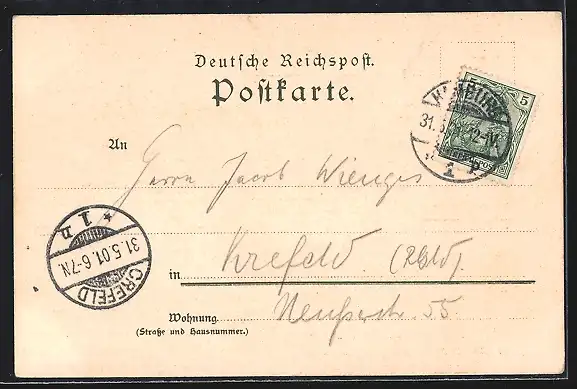 Deutsche Reichspost.
Postkarte.
5
HAMBURG
31.5.01. 12-1V.
1
An
Herrn Jacob Wienges
* 1 d
31.5.01.6-7N.
CREFELD
in Krefeld. (Rhld).
Wohnung Neußerstr. 55
(Straße und Hausnummer.)